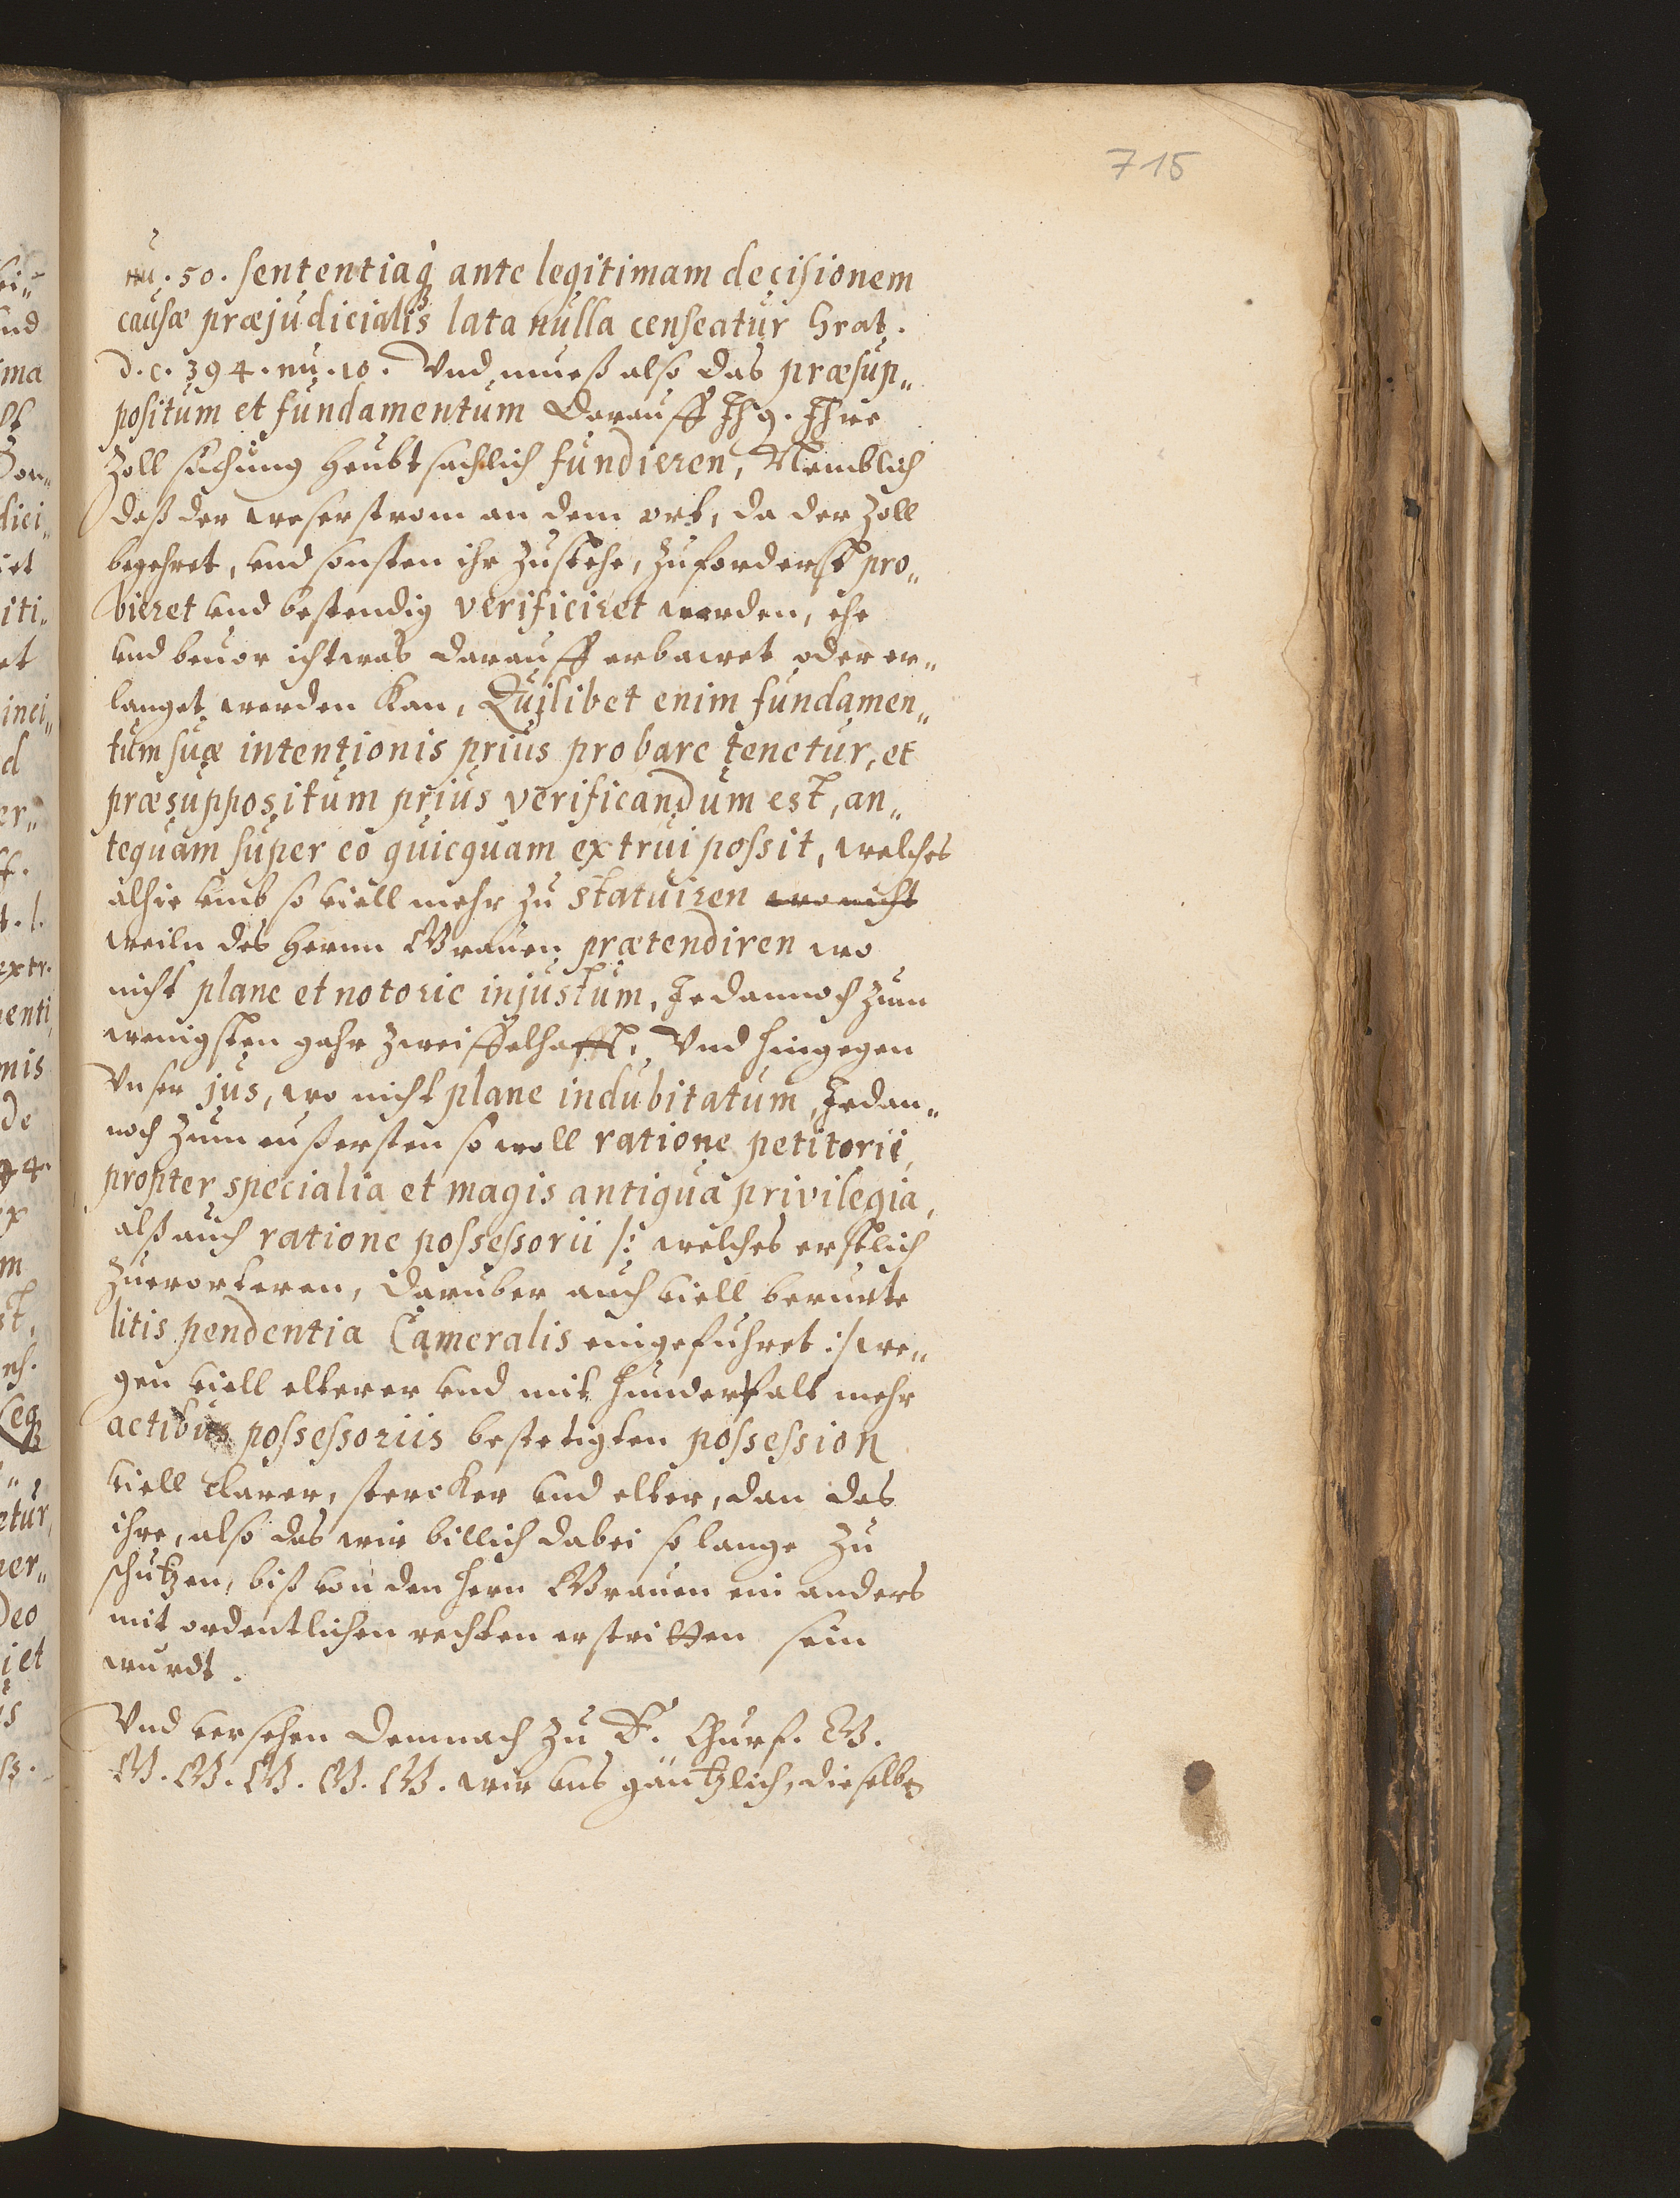 715
nu. 50. sententiaq́ ante legitimam decisionem
causæ præjudicialis lata nulla censeatur Grat.
d. c. 394. nu. 10. Vnd mueß also das præsup„
positum et fundamentum darauff Ih g. Ihre
Zoll sachung heubtsachlich fundieren, Nemblich
daß der weserstrom an dem ort, da der Zoll
begehret, vnd sonsten ihr zustehe, zuforderst pro„
bieret vnd bestendig verificiret werden, ehe
vnd beuor ichtwas darauff erbawet oder er„
langet werden kan, Quilibet enim fundamen„
tum suæ intentionis prius probare tenetur, et
præsuppositum prius verificandum est, an„
tequam super eo quicquam extrui possit, welches
alhie vmb so viell mehr zu statuiren wo nicht
weiln des herrn Grauen prætendiren wo
nicht plane et notorie injustum, Jedannoch zum
wenigsten gahr zweiffelhafft, Vnd hingegen
Vnser jus, wo nicht plane indubitatum, Jedan„
noch zum eußersten so woll ratione petitorii,
propter specialia et magis antiqua privilegia,
alß auch ratione possessorii /: welches erstlich
zuerorteren, daruber auch viell berurte
litis pendentia Cameralis eingefuhret :/ we„
gen viell elterer vnd mit hundertfalt mehr
actibus possessoriis bestetigten possession
viell klarer, stercker vnd elter, dan das
ihre, also das wir billich dabei so lange zu
schutzen, biß von den hern Grauen ein anders
mit ordentlichen rechten erstritten sein
wurdt.
Vnd versehen demnach zu E. Churf. G.
G. G. G. G. G. wir vns gäntzlich, dieselbe